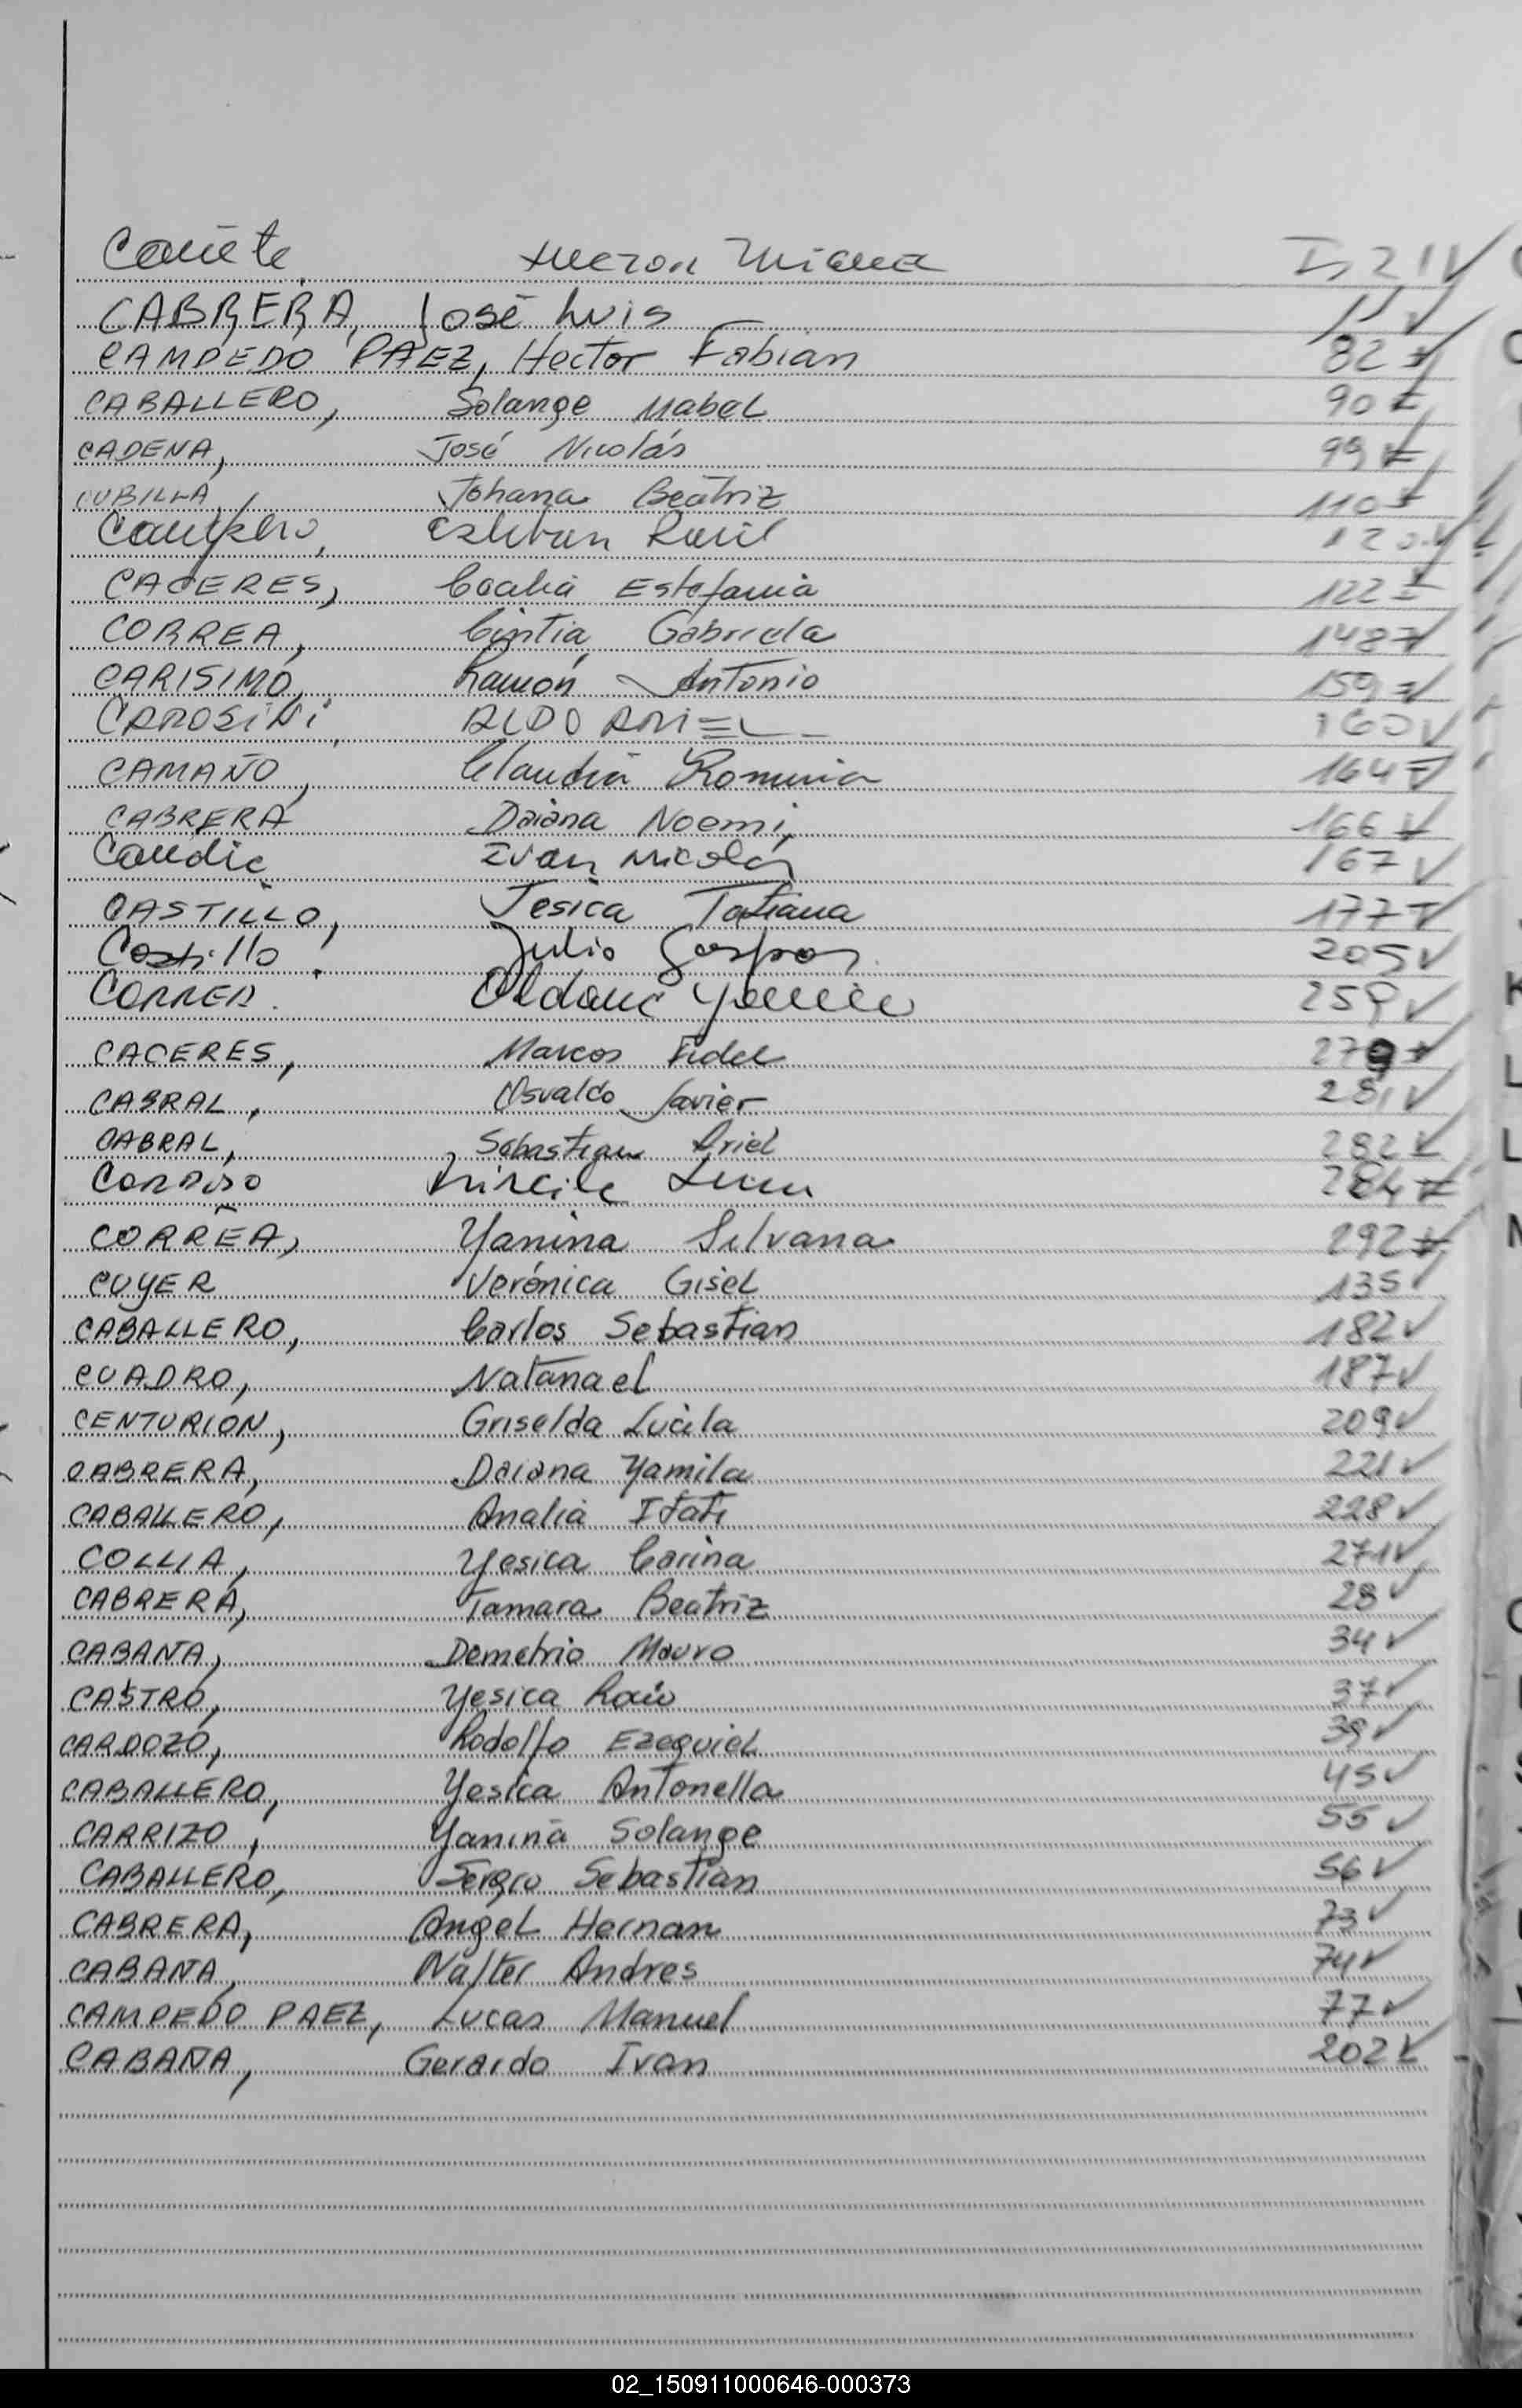 Cañete
CABRERA, José Luis 11
CAMPEDO PAEZ, Hector Fabian 82
CABALLERO, Solange Mabel 90
CADENA, José Nicolás 99
CUBILLA, Johana Beatriz 110
Esteban Raúl 120
CACERES, Cecilia Estefania 122
CORREA, Cintia Gabriela 148
CARISIMO, Ramón Antonio 159
CAROSINI, ALDO ARIEL 160
CAMAÑO, Claudia Romina 164
CABRERA Daiana Noemi, 166
Candia Ivan Nicolás 167
CASTILLO, Jesica Tatiana 177
Castillo Julio Gaspar 205
CORREA Oldana 259
CACERES, Marcos Fidel 279
CABRAL, Osvaldo Javier 281
CABRAL, Sebastian Ariel 282
284
CORREA, Yanina Silvana 292
CUYER Verónica Gisel 135
CABALLERO, Carlos Sebastian 182
CUADRO, Natanael 187
CENTURION, Griselda Lucila 209
CABRERA, Daiana Yamila 221
CABALLERO, Analia Itati 228
COLLIA, Yesica Carina 271
CABRERA, Tamara Beatriz 28
CABAÑA, Demetrio Mauro 34
CASTRO, Yesica Rocio 37
CARDOZO, Rodolfo Ezequiel 39
CABALLERO, Yesica Antonella 45
CARRIZO, Yanina Solange 55
CABALLERO, Sergio Sebastian 56
CABRERA, Angel Hernan 73
CABAÑA, Walter Andres 74
CAMPEDO PAEZ, Lucas Manuel 77
CABAÑA, Gerardo Ivan 202
02_150911000646-000373